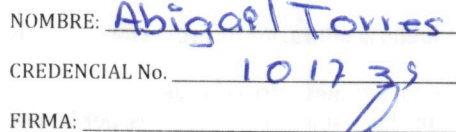 NOMBRE: Abigail Torres
CREDENCIAL No. 101739
FIRMA: